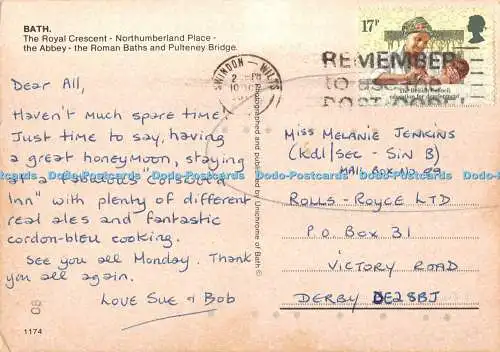 BATH.
The Royal Crescent - Northumberland Place -
the Abbey - the Roman Baths and Pulteney Bridge.
17P
The British Council
education for development
SWINDON - WILTS
REMEMBER
to use the
POST CODE
Dear All,
Haven't much spare time!
Just time to say, having
a great honeymoon, staying
at a "fabulous" Cotswold
Inn" with plenty of different
real ales and fantastic
cordon-bleu cooking.
See you all Monday. Thank
you all again.
Love Sue & Bob
Photographed and published by Unichrome of Bath ©
MISS MELANIE JENKINS
(Kd1/SEC - SIN B)
MAIL BOX NO
ROLLS-ROYCE LTD
P.O BOX 31
VICTORY ROAD
DERBY DE28BJ
Dodo-Postcards Dodo-Postcards Dodo-Postcards Dodo-Postcards Dodo-Postcards
1174